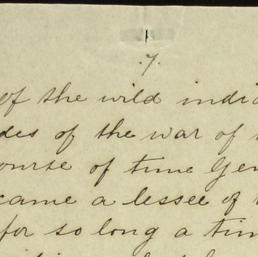 .7.
of the wild indi
des of the war of
ourse of time Gen
came a lessee of
for so long a tim